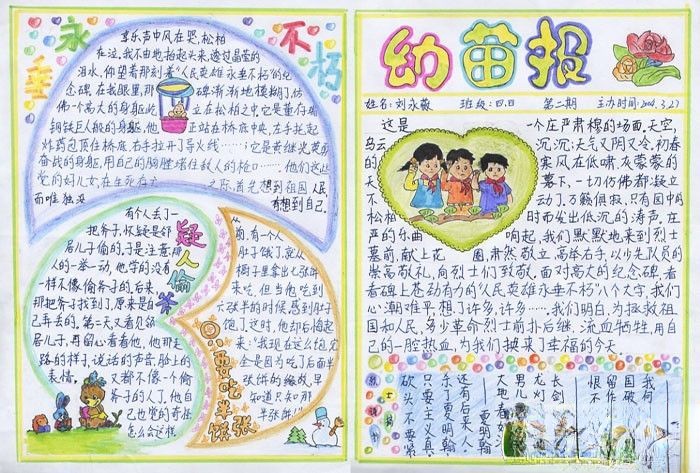 永垂不朽
哀乐声中风在哭,松柏
在泣。我不由地抬起头来,透过晶莹的
泪水,仰望着那刻着“人民英雄永垂不朽”的纪
念碑。在我眼里,那碑渐渐地模糊了,仿
佛一个高大的身躯屹立在松柏之中,它是董存瑞
钢铁巨人般的身躯,他正站在桥底中央,左手托起
炸药包顶住桥底,右手拉开了导火线……;它是黄继光英勇
奋战的身躯,用自己的胸膛堵住敌人的枪口……。他们这些
党的好儿女,在生死存亡之际,首先想到祖国人民
而唯独没有想到自己。
疑人偷斧
有个人丢了一
把斧子,怀疑是邻
居儿子偷的,于是注意那
人的一举一动,他字的没有
一样不像偷斧子的。后来,
那把斧子找到了,原来是自
己弄丢的,第二天又看见邻
居儿子,再留心看看他,他那走
路的样子,说话的声音,脸上的
表情,又都不像一个偷
斧子的人了,他自
己也觉的奇怪
怎么会这样。
只要吃半张饼
从
前,有一个人
肚子饿了,就从
柜子里拿出七张饼
来吃,但当他吃到
六张半的时候,感到肚子
饱了。这时,他却后悔起
来:“我现在这么饱,完
全是因为吃了后面半
张饼的缘故,早
知道只如那
半张饼!”
幼苗报
姓名:刘永薇 班级:四.四 第二期 主办时间:2004.3.27
这是一个庄严肃穆的场面,天空,
乌云沉沉;天气又阴又冷,初春
的寒风在低啸,灰蒙蒙的
天幕下,一切仿佛都凝立
不动了,万籁俱寂,只有园中的
松柏时而发出低沉的涛声。在
严的乐曲响起,我们默默地来到烈士
墓前,献上花圈,肃然敬立,高举右手,以少先队员的
崇高敬礼,向烈士们致敬,面对高大的纪念碑,看
着碑上苍劲有力的“人民英雄永垂不朽”八个大字,我们
心潮难平,想了许多,许多……。我们明白,为拯救祖
国和人民,多少革命烈士前扑后继,流血牺牲,用自
己的一腔热血,为我们换来了幸福的今天。
砍头不要紧
只要主义真
夏明翰
还有后来人
夏明翰
大地
男儿
龙灯
长剑
恨不
留作
国破
我何